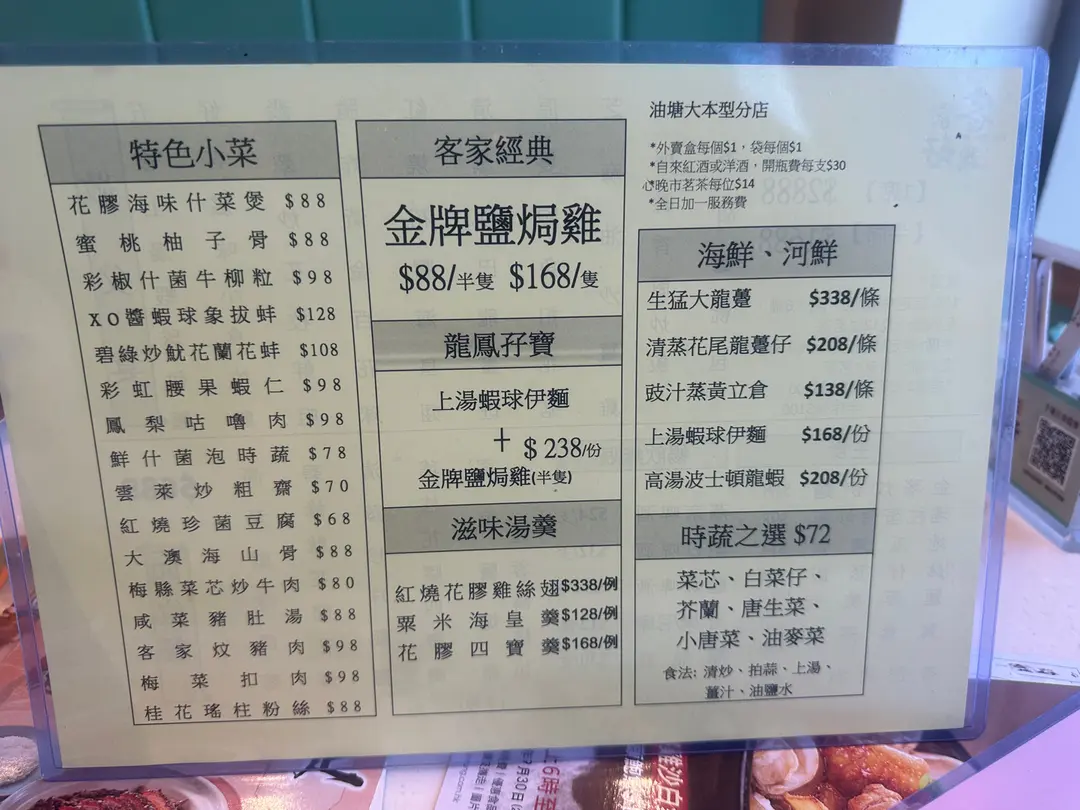 特色小菜
花膠海味什菜煲 $88
蜜桃柚子骨 $88
彩椒什菌牛柳粒 $98
XO醬蝦球象拔蚌 $128
碧綠炒魷花蘭花蚌 $108
彩虹腰果蝦仁 $98
鳳梨咕嚕肉 $98
鮮什菌泡時蔬 $78
雲萊炒粗齋 $70
紅燒珍菌豆腐 $68
大澳海山骨 $88
梅縣菜芯炒牛肉 $80
咸菜豬肚湯 $88
客家炆豬肉 $98
梅菜扣肉 $98
桂花瑤柱粉絲 $88
客家經典
金牌鹽焗雞
$88/半隻 $168/隻
龍鳳孖寶
上湯蝦球伊麵
+ $238/份
金牌鹽焗雞(半隻)
滋味湯羹
紅燒花膠雞絲翅 $338/例
粟米海皇羹 $128/例
花膠四寶羹 $168/例
油塘大本型分店
*外賣盒每個$1，袋每個$1
*自來紅酒或洋酒，開瓶費每支$30
*晚市茗茶每位$14
*全日加一服務費
海鮮、河鮮
生猛大龍躉 $338/條
清蒸花尾龍躉仔 $208/條
豉汁蒸黃立倉 $138/條
上湯蝦球伊麵 $168/份
高湯波士頓龍蝦 $208/份
時蔬之選 $72
菜芯、白菜仔、
芥蘭、唐生菜、
小唐菜、油麥菜
食法: 清炒、拍蒜、上湯、
薑汁、油鹽水